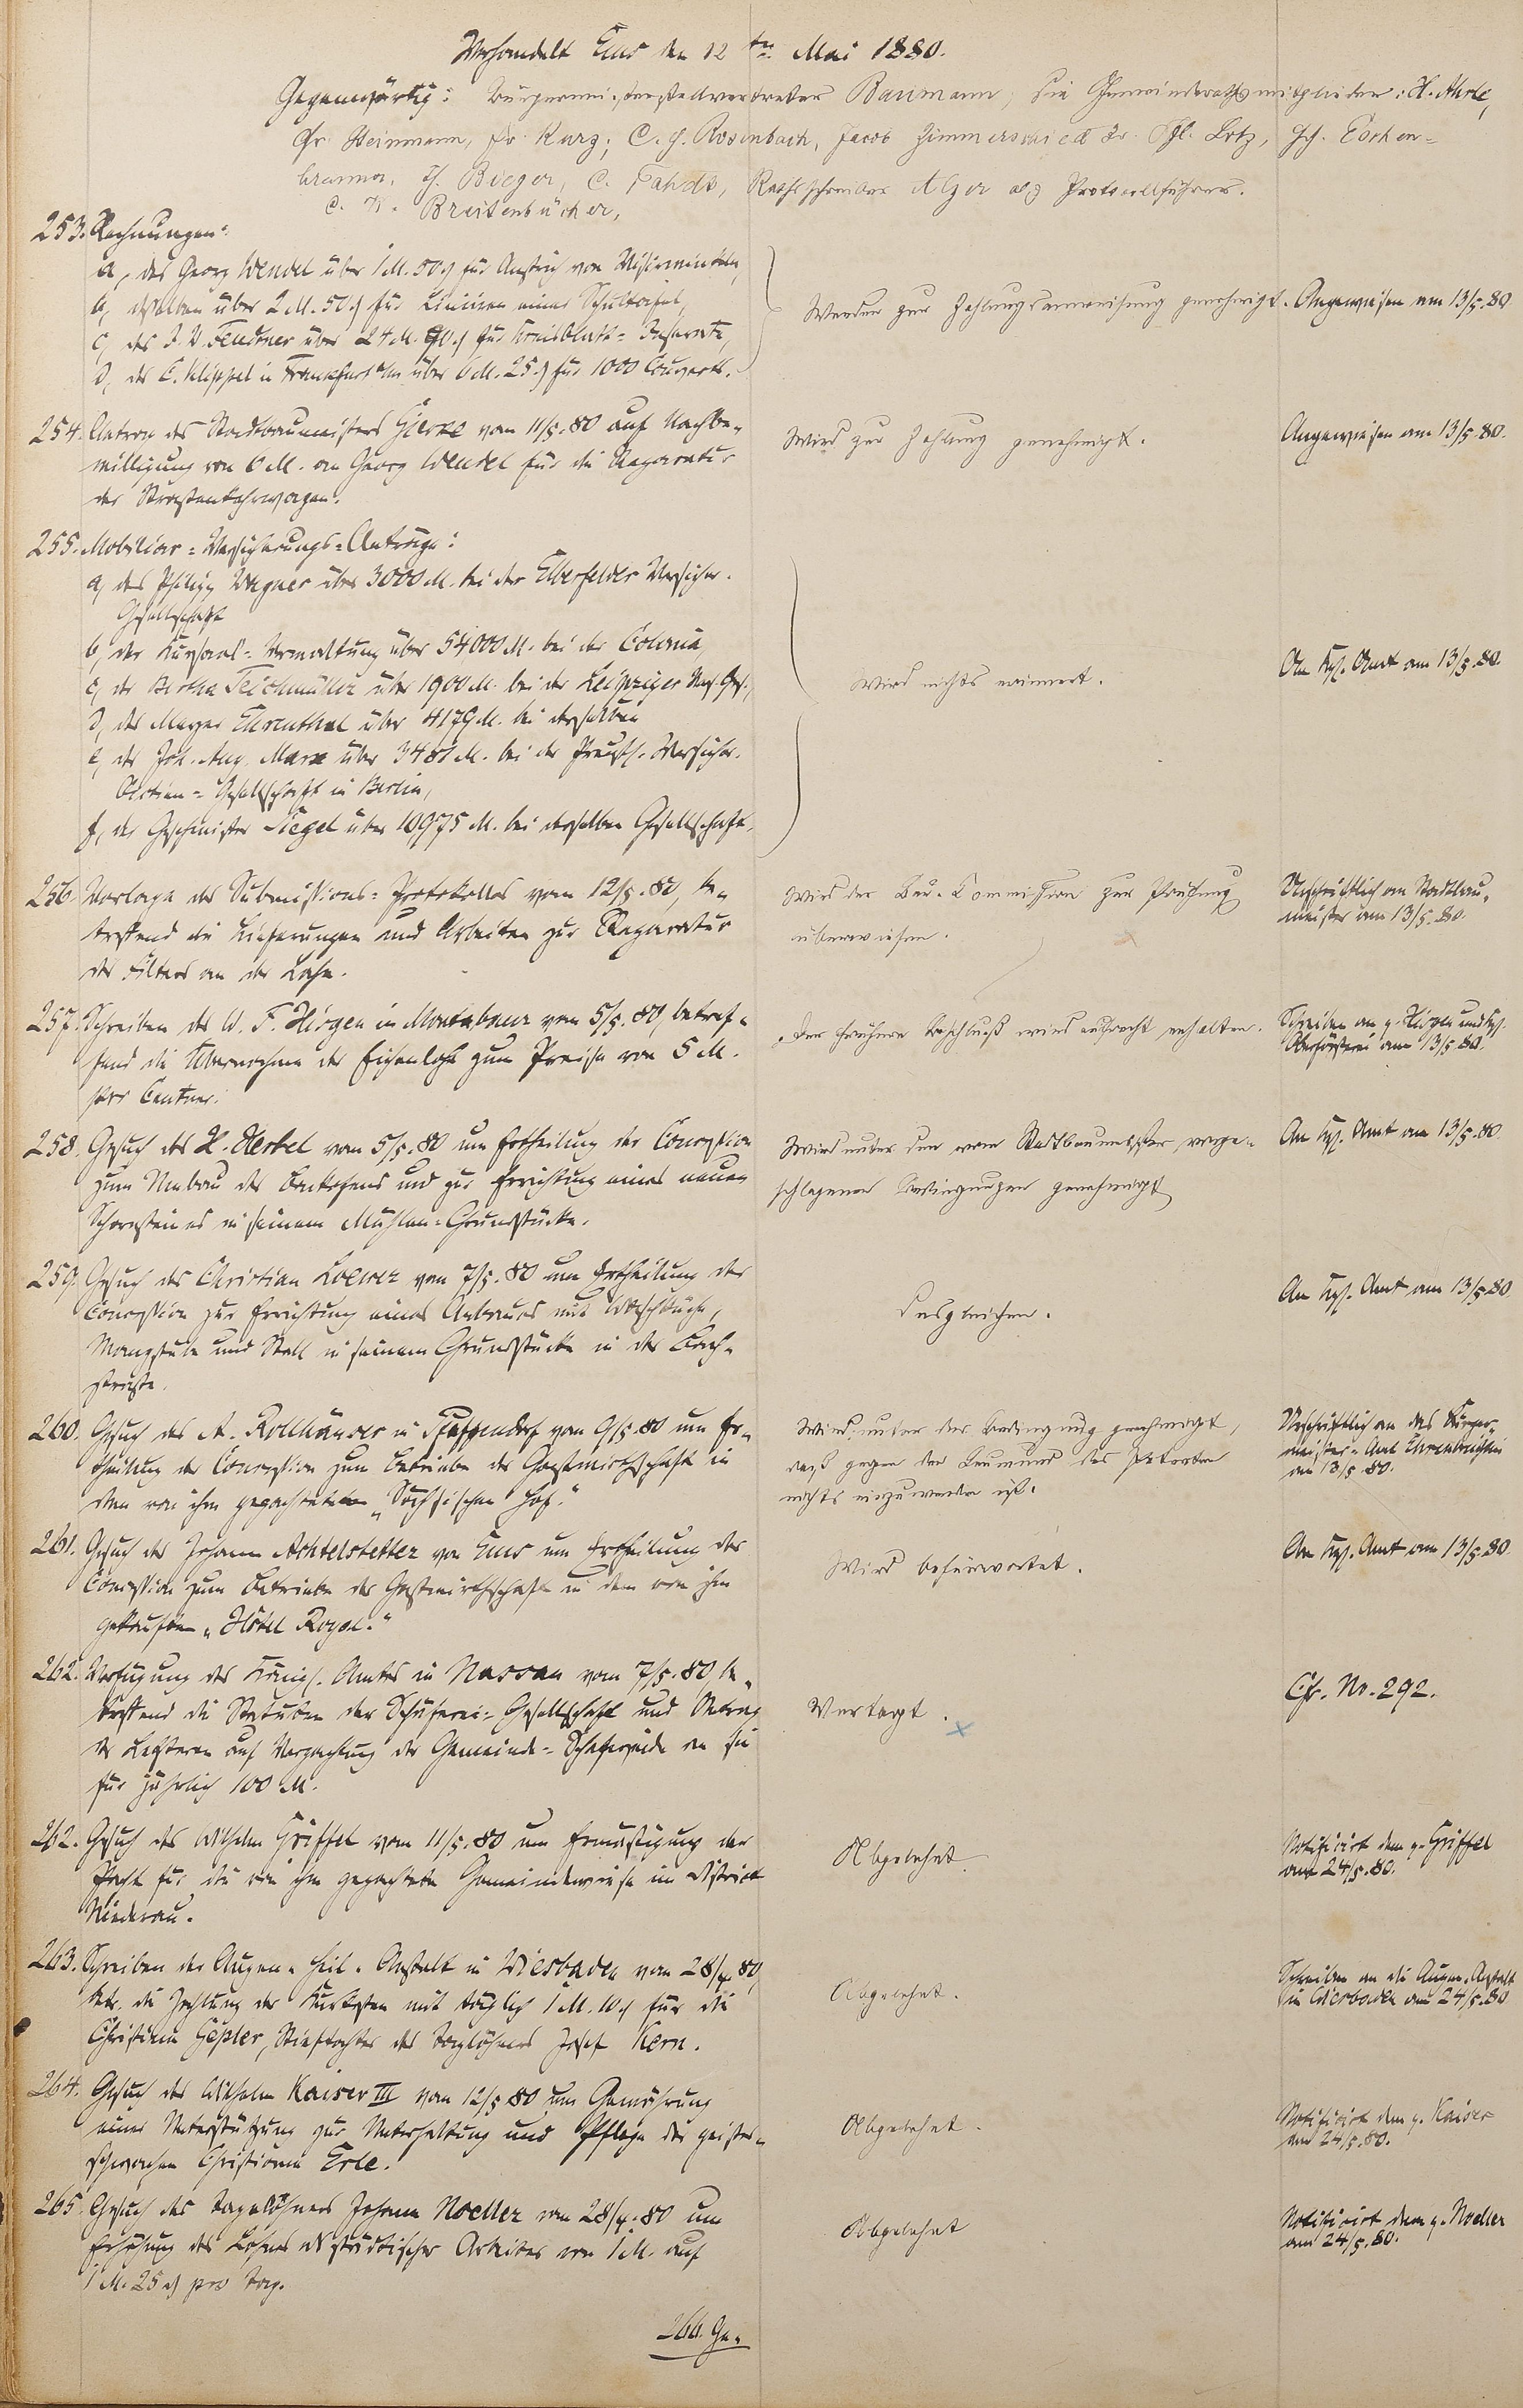 Verhandelt Ems den 12ten Mai 1880.
Gegenwärtig: Bürgermeisterstellvertreter Baumann, die Gemeinderathsmitglieder: H. Ahrle,
Gr. Heinmann, Fr. Kurz, C. H. Rosenbach, Jacob Zimmerschied 2r. Phl. Lotz, Hch. Eschen=
brenner, H. Bieger, C. Fahdt, Rathsschreiber Alzer als Protocollführer.
C. W. Breitenbücher,
253. Rechnungen:
a, des Georg Wendel über 1 M. 50 ₰ für Anstrich von
b, desselben über 2 M. 50 ₰ für Liniiren einer Schultafel,
c, des J. W. Feldner über 24 M. 90 ₰ für Kreisblatt=Inserate,
d, des C. Klippel in Frankfurt a/M über 6 M. 25 ₰ für 1000 Couverts.
Werden zur Zahlungsanweisung genehmigt.
Angewiesen am 13/5.80
254. Antrag des Stadtbaumeisters Gierke vom 11/5.80 auf Nachbe=
willigung von 6 M. an Georg Wendel für die Reparatur
der Straßenkehrwagen.
Wird zur Zahlung genehmigt.
Angewiesen am 13/5.80.
255. Mobiliar=Versicherungs=Anträge:
a, des Philipp Wagner über 3000 M. bei der Elberfelder Versicher.
Gesellschaft
b, der Kursaal=Verwaltung über 54000 M. bei der Colonia,
c, der Bertha Teichmüller über 1900 M. bei der Leipziger Vers. Ges.,
d, des Mayer Ehrenthal über 4179 M. bei derselben
e, des Joh. Aug. Marx über 3481 M. bei der Preuß. Versicher.
Actien=Gesellschaft in Berlin,
f, der Geschwister Siegel über 10975 M. bei derselben Gesellschaft.
Wird nichts erinnert.
An Kgl. Amt am 13/5.80.
256. Vorlage des Submissions=Protokolles vom 12/5.80, be=
treffend die Lieferungen und Arbeiten zur Reparatur
des Filters an der Lahn.
Wird der Bau=Commission zur Prüfung
überwiesen.
Urschriftlich an Stadtbau=
meister am 13/5.80.
257. Schreiben des W. F. Hisgen in Montabaur vom 5/5.80, betref=
fend die Übernahme der Eichenlohe zum Preise von 5 M.
per Centner.
Der frühere Beschluß wird aufrecht erhalten.
Schreiben an p. Hisgen und Kgl.
Oberförsterei am 13/5.80.
258. Gesuch des H. Herbel vom 5/5.80 um Ertheilung der Concession
zum Umbau des Backofens und zur Errichtung eines neuen
Schornsteines in seinem Mühlen=Grundstücke.
Wird unter den vom Stadtbaumeister vorge=
schlagenen Bedingungen genehmigt
An Kgl. Amt am 13/5.80.
259. Gesuch des Christian Loewer vom 7/5.80 um Ertheilung der
Concession zur Errichtung eines Anbaues mit Waschküche,
Mangstube und Stall in seinem Grundstücke in der Bach=
straße.
Desgleichen.
An Kgl. Amt am 13/5.80
260. Gesuch des A. Rollhäuser in Pfaffendorf vom 9/5.80 um Er=
theilung der Concession zum Betriebe der Gastwirthschaft in
dem von ihm gepachteten „Sächsischen Hof."
Wird unter der Bedingung genehmigt,
daß gegen den Leumund des Petenten
nichts einzuwenden ist.
Urschriftlich an das Bürger=
meister=Amt Ehrenbreitstein
am 13/5 80.
261. Gesuch des Johann Achtelstetter von Ems um Ertheilung der
Concession zum Betriebe der Gastwirthschaft in dem von ihm
gekauften „Hôtel Royal."
Wird befürwortet.
An Kgl. Amt am 13/5.80
262. Verfügung des Königl. Amtes in Nassau vom 7/5.80, be=
treffend die Statuten der Schäferei=Gesellschaft und Antrag
der Letzteren auf Verpachtung der Gemeinde=Schafweide an sie
für jährlich 100 M.
Vertagt.
Cfr. No. 292.
262. Gesuch des Wilhelm Griffel vom 11/5.80 um Ermäßigung der
Pacht für die von ihm gepachtete Gemeindewiese im District
Niederau.
Abgelehnt.
Notificirt dem p. Griffel
am 24/5.80.
263. Schreiben der Augen=Heil=Anstalt in Wiesbaden vom 28/4 80,
betr. die Zahlung der Kurkosten mit täglich 1 M. 10 ₰ für die
Christine Geßler, Stieftochter des Taglöhners Josef Kern.
Abgelehnt.
Schreiben an die Augen=Anstalt
in Wiesbaden am 24/5.80
264. Gesuch des Wilhelm Kaiser III vom 12/5 80 um Gewährung
einer Unterstützung zur Unterhaltung und Pflege der geistes=
schwachen Christiane Erle.
Abgelehnt.
Notificirt dem p. Kaiser
am 24/5.80.
265. Gesuch des Tagelöhners Johann Noeller vom 28/4.80 um
Erhöhung des Lohnes als städtischer Arbeiter von 1 M. auf
1 M. 25 ₰ pro Tag.
Abgelehnt
Notificirt dem p. Noeller
am 24/5.80.
266. Ge=